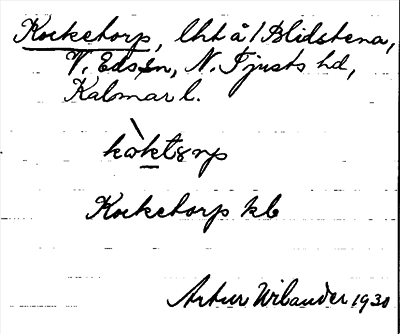 Kocketorp, lht å Blidstena,
V. Eds sn, N. Tjusts hd,
Kalmar l.
kòktərp
Kocketorp kb
Artur Wilander 1930